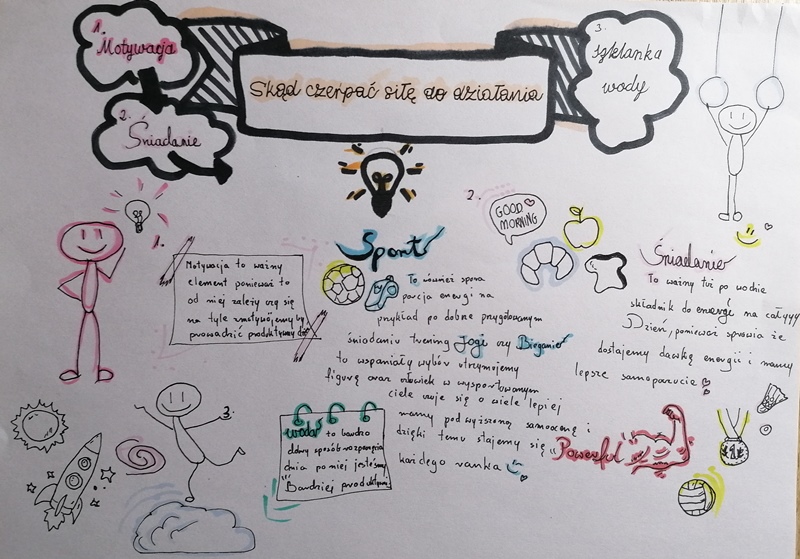 1.
Motywacja
2.
Śniadanie
Skąd czerpać siłę do działania
3.
szklanka
wody
1.
Motywacja to ważny
element ponieważ to
od niej zależy czy się
na tyle zmotywójemy by
prowadzić produktywny
Sport
To również spora
porcja energi na
przykład po dobrze przygotowanym
śniadaniu trening Jogi czy Bieganie
to wspaniały wybór utrzymujemy
figurę oraz człowiek w wysportowanym
ciele czuje się o wiele lepiej
mamy podwyższoną samoocenę i
dzięki temu stajemy się "Powerful"
każdego ranka
2.
GOOD
MORNING
Śniadanie
To ważny tuż po wodzie
składnik do energi na cały
Dzień, ponieważ sprawia że
dostajemy dawkę energii i mamy
lepsze samopoczucie
3.
woda to bardzo
dobry sposób rozpoczęcia
dnia po niej jesteśmy
"Bardziej produktywni
1